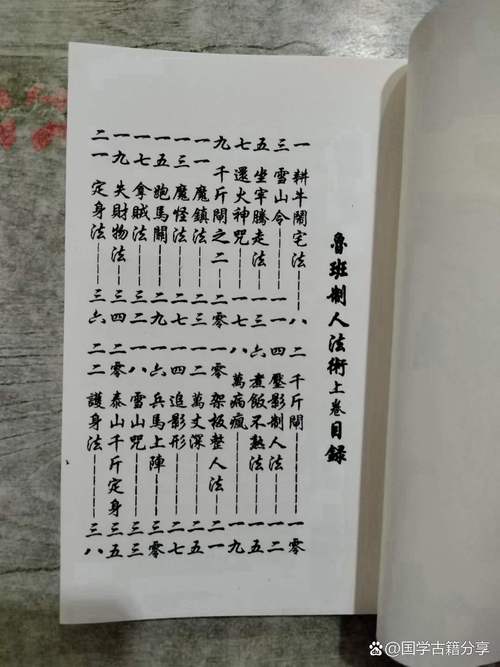 魯班制人法術上卷目錄
一 耕牛鬧宅法------八 二 千斤閘------一零
三 雪山令------一一 四 壓影制人法------一二
五 坐牢騰走法------一三 六 煮飯不熟法------一五
七 還火神咒------一七 八 萬病瘋------一九
九 千斤閘之二------二零 一零 架板整人法------二一
一一 魔鎮法------ 一二 萬丈深------
一三 魔怪法------二七 一四 追影形------二七
一五 跑馬開------二九 一六 兵馬上陣------三零
一七 拿賊法------ 一八 雪山咒------三三
一九 失財物法------三四 二零 泰山千斤定身------三五
二一 定身法------三六 二二 護身法------三八
@国学古籍分享